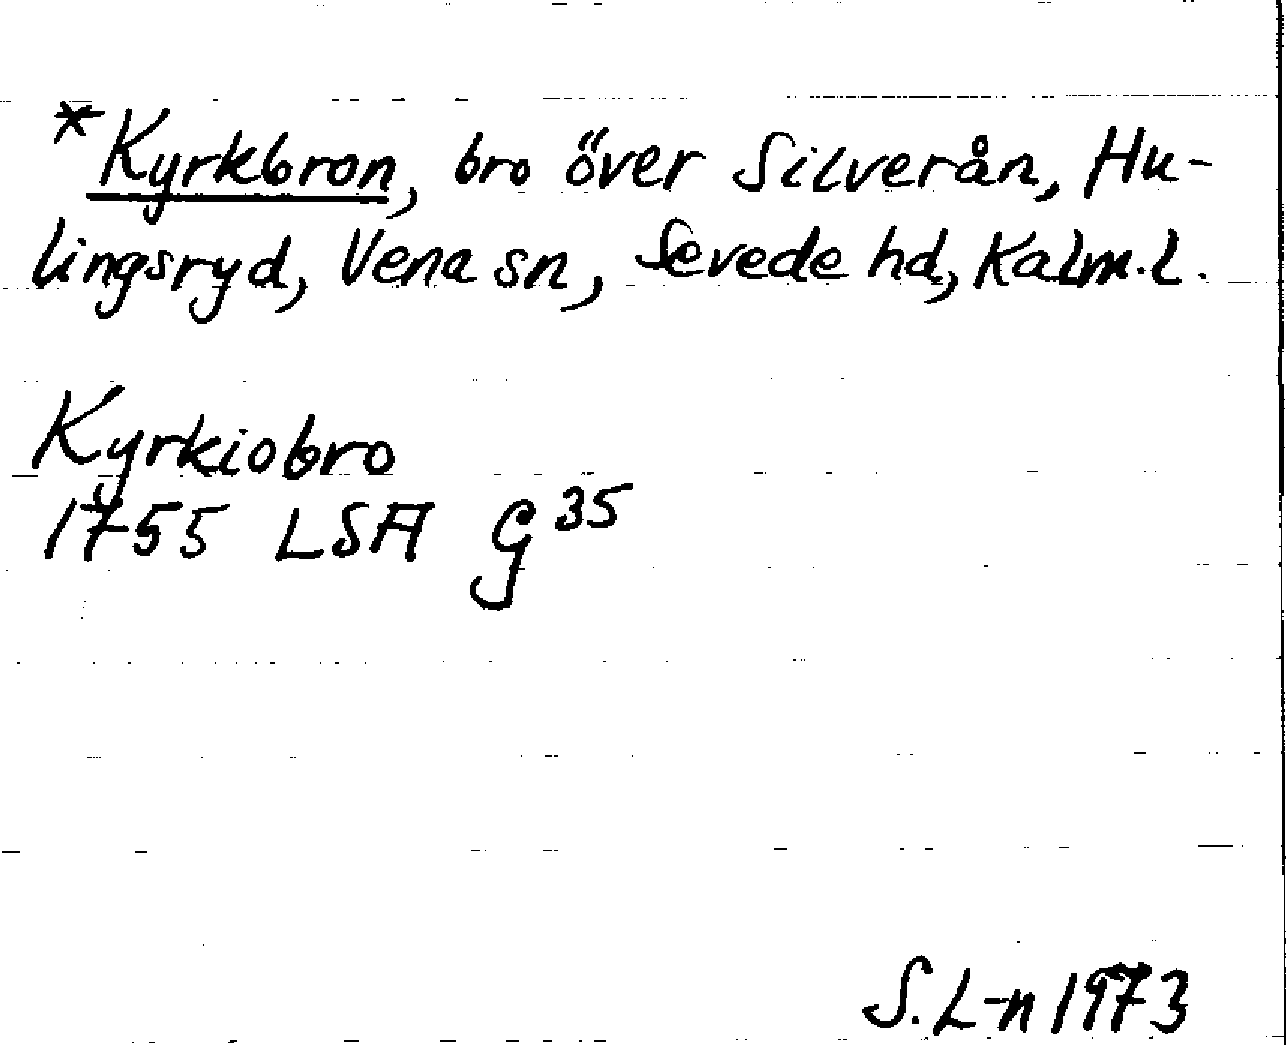 *Kyrkbron, bro över Silverån, Hu-
lingsryd, Vena sn, Sevede hd, Kalm. l.
Kyrkiobro
1755 LSA G 35
S. L-n 1973